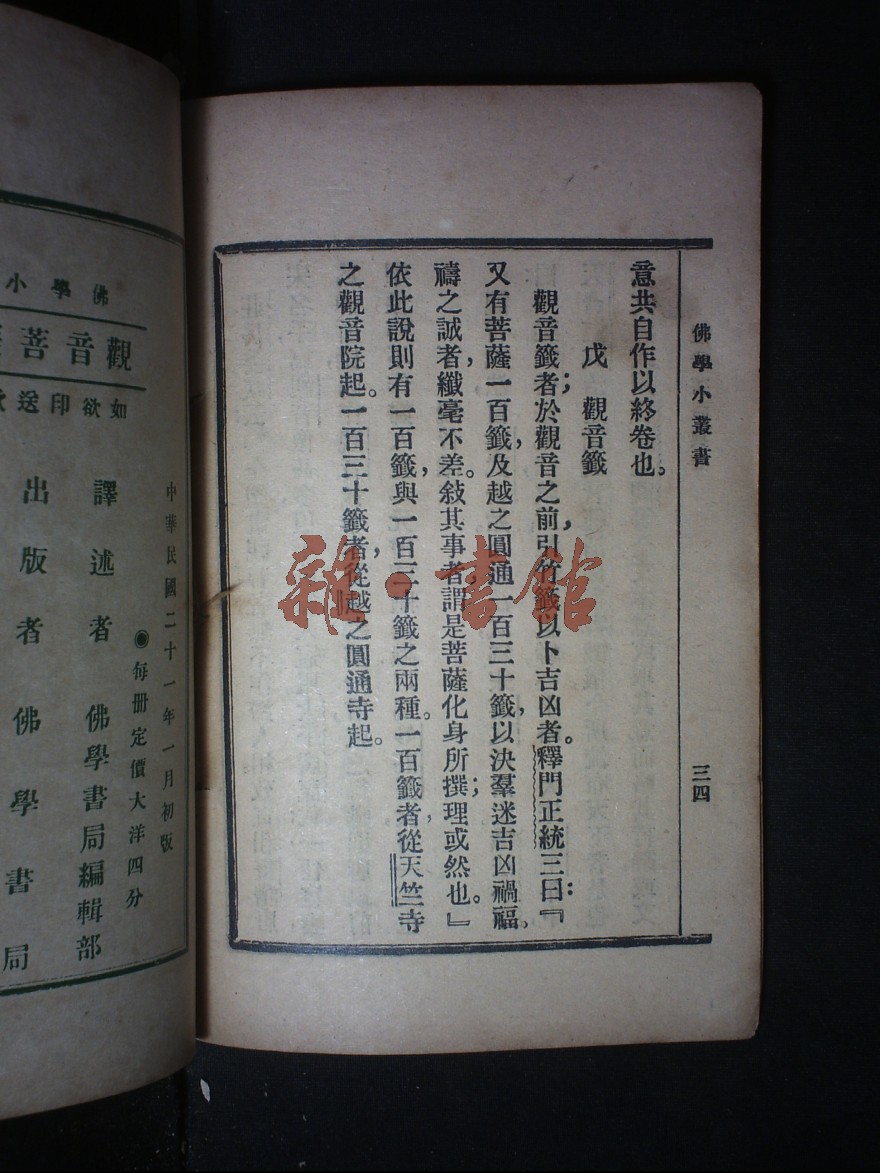 佛學小叢書
三四
意共自作以終卷也。
戊　觀音籤
觀音籤者；於觀音之前，引竹籤以卜吉凶者。釋門正統三曰：『
又有菩薩一百籤，及越之圓通一百三十籤，以決羣迷吉凶禍福，
禱之誠者，纖毫不差。敍其事者，謂是菩薩化身所撰；理或然也。』
依此說則有一百籤，與一百三十籤之兩種。一百籤者，從天竺寺
之觀音院起。一百三十籤者，從越之圓通寺起。
雜·書館
佛學小
觀音菩
如欲印送
中華民國二十一年一月初版
◉每册定價大洋四分
譯述者　佛學書局編輯部
出版者　佛學書局